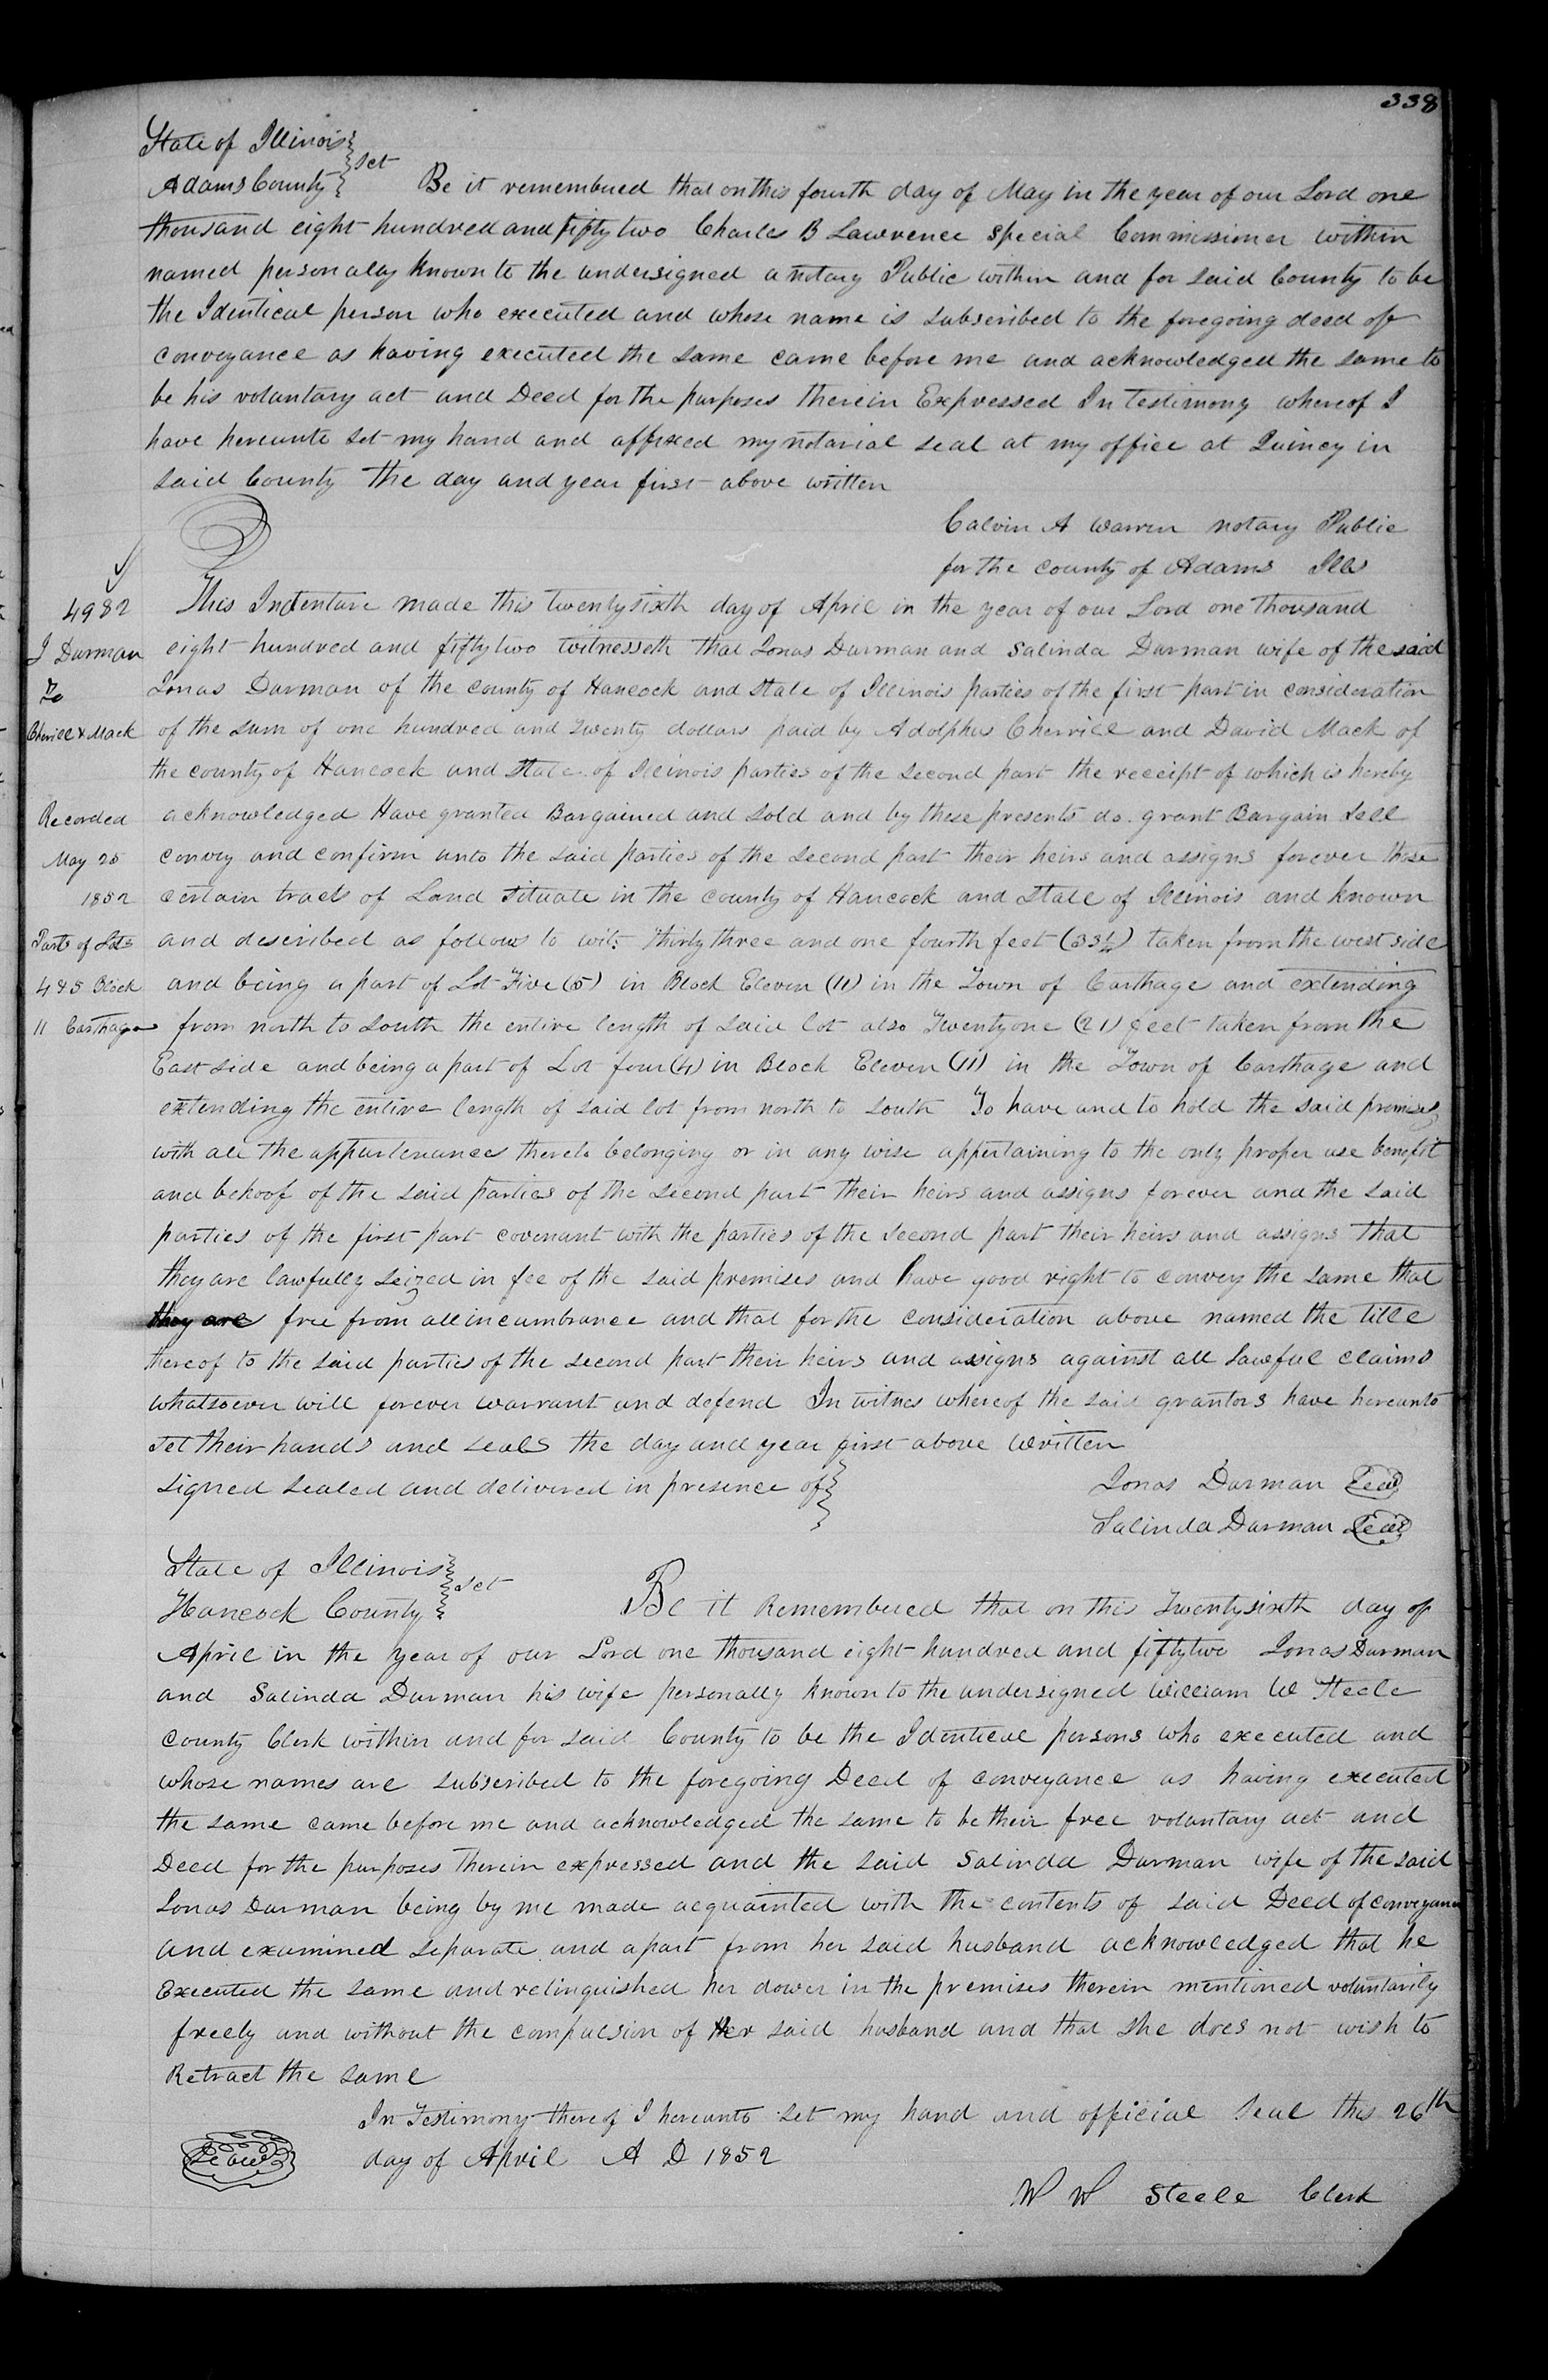 338
State of Illinois
Adams County } Sct Be it remembered that on this fourth day of May in the year of our Lord one
thousand eight hundred and fifty two Charles B Lawrence Special Commissioner within
named personaly known to the undersigned a notary Public within and for said County to be
the Identical person who executed and whose name is subscribed to the foregoing deed of
conveyance as having executed the same came before me and acknowledged the same to
be his voluntary act and Deed for the purposes therein Expressed In Testimony whereof I
have hereunto set my hand and affixed my notarial seal at my office at Quincy in
said County the day and year first above written
Calvin A Warren notary Public
for the county of Adams Ills
4982
J Durman
To
Cherrill & Mack
Recorded
May 25
1852
Parts of Lots
4 & 5 Block
11 Carthage
This Indenture made this twentysixth day of April in the year of our Lord one thousand
eight hundred and fiftytwo witnesseth that Jonas Durman and Salinda Durman wife of the said
Jonas Durman of the county of Hancock and State of Illinois parties of the first part in consideration
of the sum of one hundred and Twenty dollars paid by Adolphus Cherrill and David Mack of
the county of Hancock and State of Illinois parties of the second part the receipt of which is hereby
acknowledged Have granted Bargained and Sold and by these presents do grant Bargain Sell
convey and confirm unto the said parties of the second part their heirs and assigns forever those
certain tracts of Land situate in the county of Hancock and State of Illinois and known
and described as follows to wit: Thirty three and one fourth feet (33¼) taken from the west side
and being a part of Lot Five (5) in Block Eleven (11) in the Town of Carthage and extending
from north to south the entire length of said lot also Twentyone (21) feet taken from the
East side and being a part of Lot four (4) in Block Eleven (11) in the Town of Carthage and
extending the entire length of said lot from north to south To have and to hold the said premises
with all the appurtenances thereto belonging or in any wise appertaining to the only proper use benefit
and behoof of the said parties of the second part their heirs and assigns forever and the said
parties of the first part covenant with the parties of the second part their heirs and assigns that
they are lawfully seized in fee of the said premises and have good right to convey the same that
they are free from all incumbrance and that for the consideration above named the title
thereof to the said parties of the second part their heirs and assigns against all lawful claims
whatsoever will forever warrant and defend In witness whereof the said grantors have hereunto
set their hands and seals the day and year first above written
Signed sealed and delivered in presence of } Jonas Durman Seal
Salinda Durman Seal
State of Illinois
Hancock County } Sct Be it Remembered that on this Twentysixth day of
April in the year of our Lord one thousand eight hundred and fiftytwo Jonas Durman
and Salinda Durman his wife personally known to the undersigned William W Steele
County Clerk within and for said County to be the Identical persons who executed and
whose names are subscribed to the foregoing Deed of conveyance as having executed
the same came before me and acknowledged the same to be their free voluntary act and
Deed for the purposes therein expressed and the said Salinda Durman wife of the said
Jonas Durman being by me made acquainted with the contents of said Deed of conveyance
and examined separate and apart from her said husband acknowledged that he
Executed the same and relinquished her dower in the premises therein mentioned voluntarily
freely and without the compulsion of Her said husband and that she does not wish to
Retract the same
In Testimony thereof I hereunto set my hand and official Seal this 26th
Seal day of April A D 1852
W W Steele Clerk